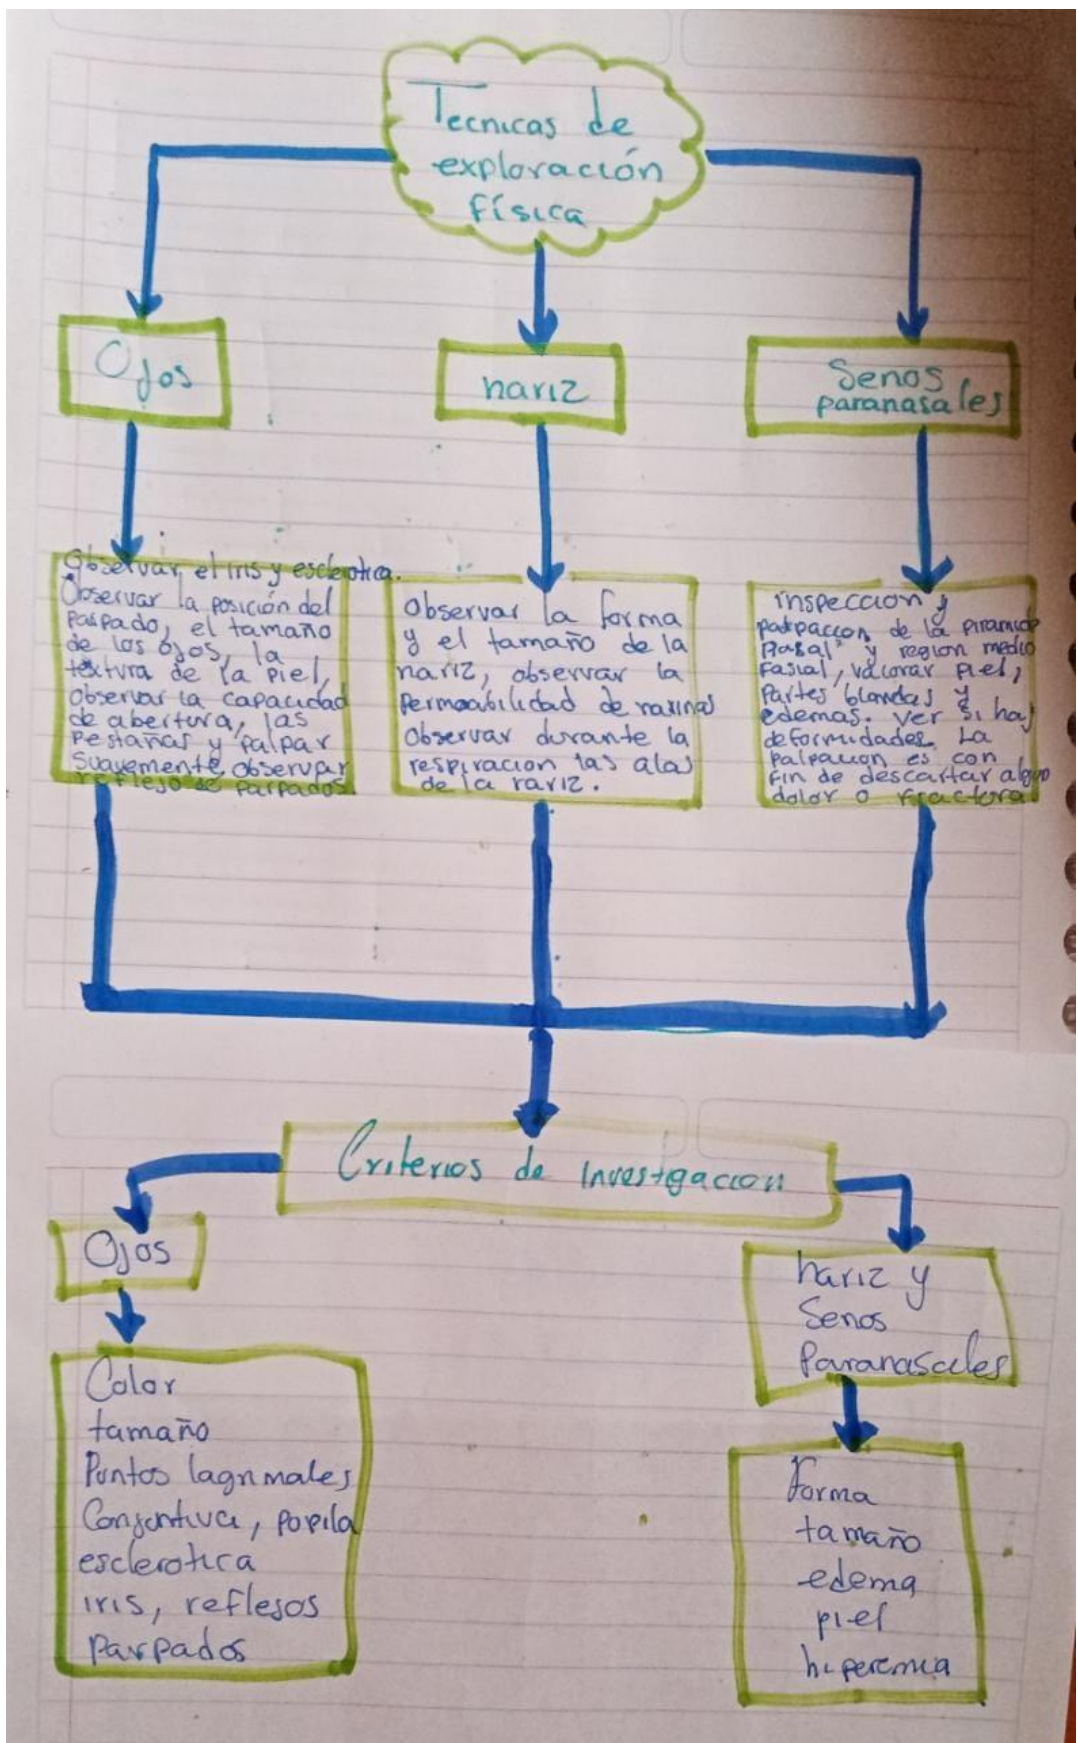 Tecnicas de
exploración
física
Ojos
nariz
Senos
paranasales
Observar el iris y esclerotica.
Observar la posición del
parpado, el tamaño
de los ojos, la
textura de la piel,
observar la capacidad
de abertura, las
pestañas y palpar
suavemente, observar
reflejo de parpados.
Observar la forma
y el tamaño de la
nariz, observar la
Permeabilidad de narinas
Observar durante la
respiracion las alas
de la nariz.
inspeccion y
palpaccion de la piramide
nasal y region medio
fasial, valorar piel,
Partes blandas y
edemas. ver si hay
deformidades. La
palpacion es con
fin de descartar algun
dolor o fractura.
Criterios de investigacion
Ojos
Color
tamaño
Puntos lagrimales
Conjuntiva, pupila
esclerotica
iris, reflejos
parpados
nariz y
Senos
Paranasales
Forma
tamaño
edema
piel
hiperemia